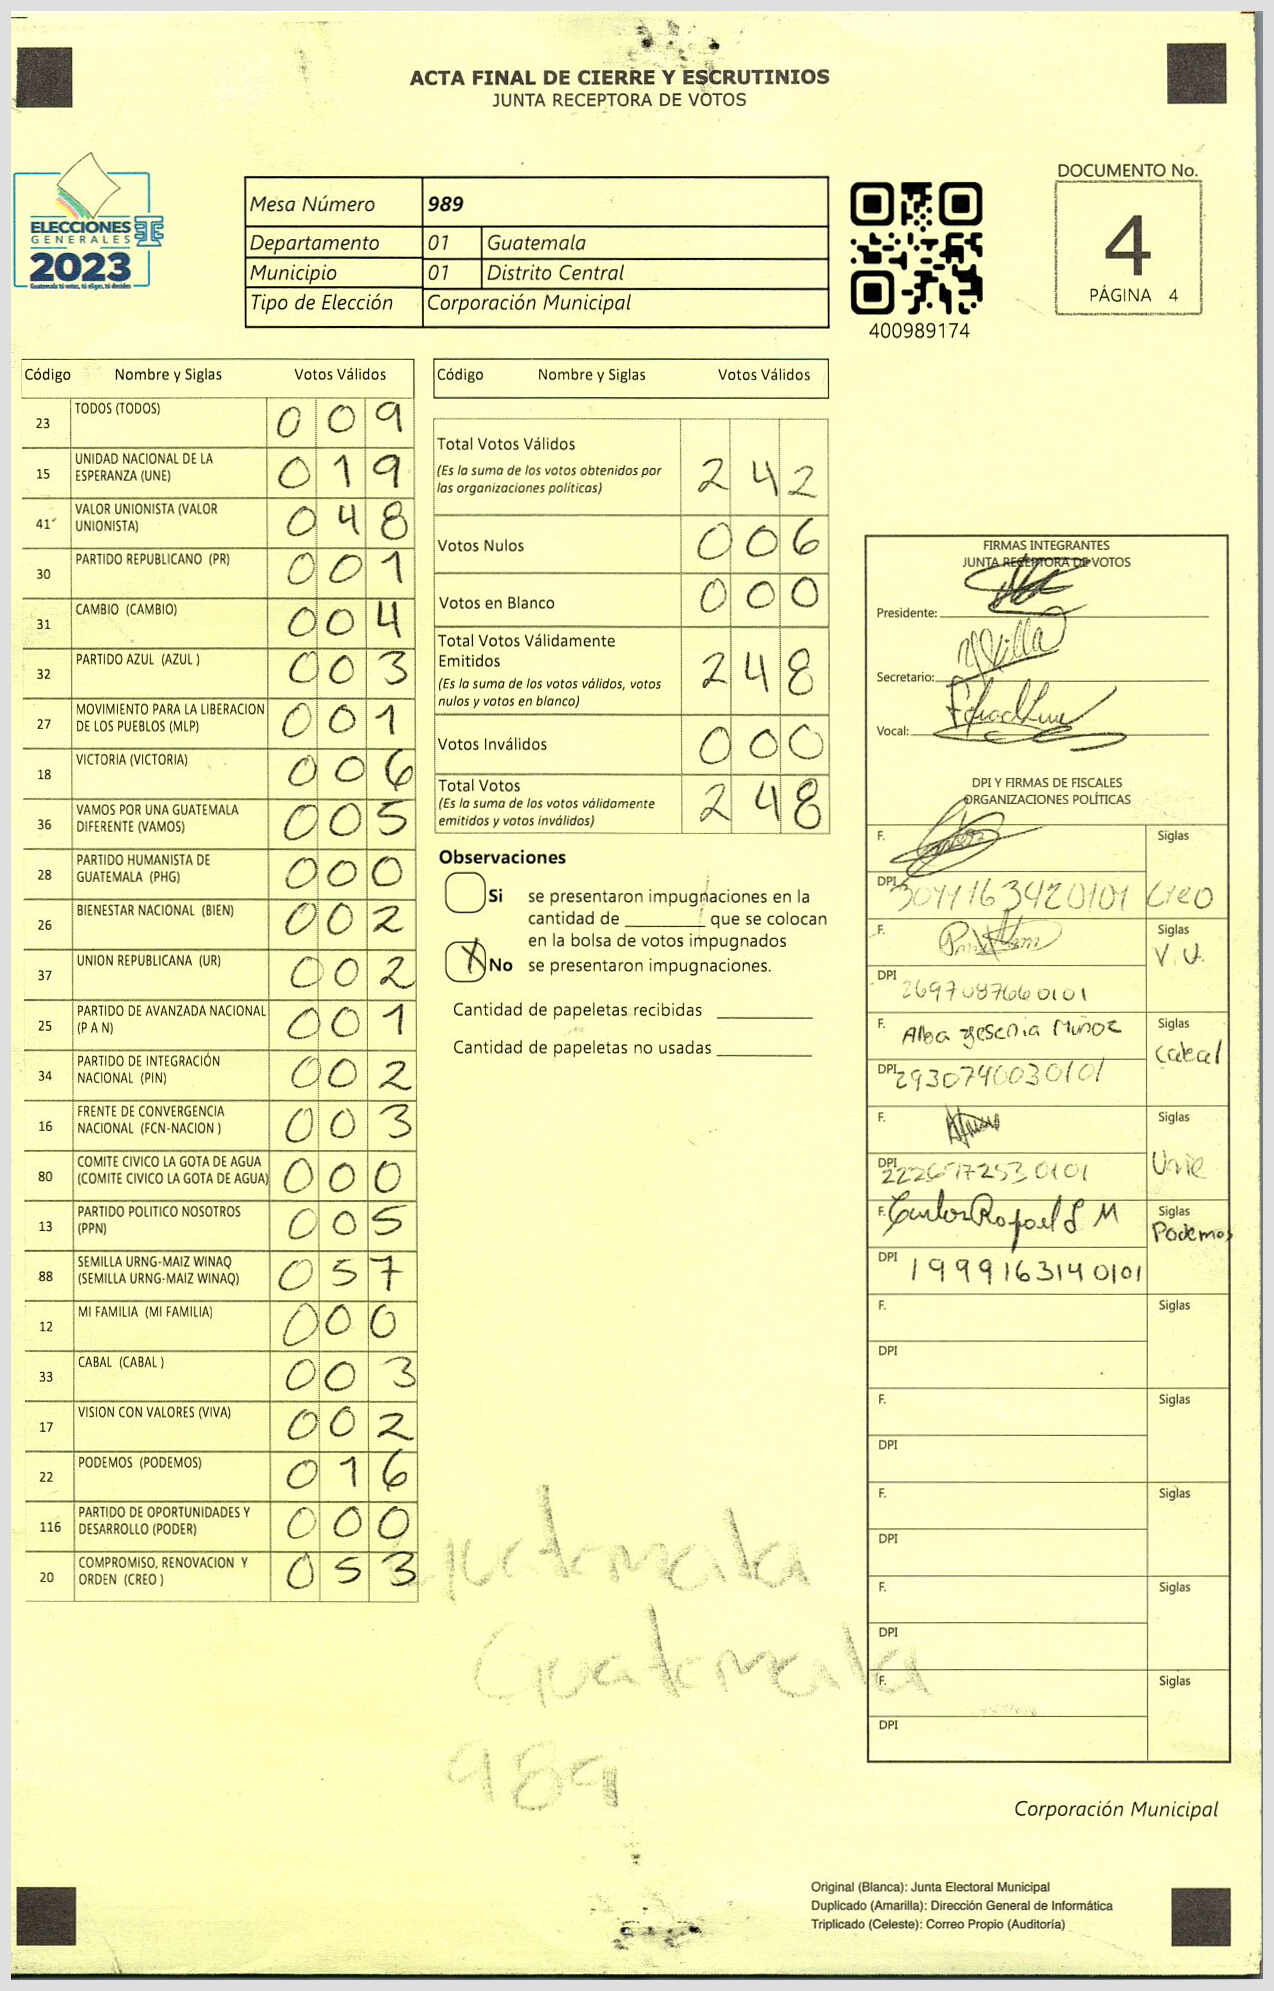 ACTA FINAL DE CIERRE Y ESCRUTINIOS
JUNTA RECEPTORA DE VOTOS
ELECCIONES
GENERALES
2023
Guatemala tú votas, tú eliges, tú decides
Mesa Número 989
Departamento 01 Guatemala
Municipio 01 Distrito Central
Tipo de Elección Corporación Municipal
400989174
DOCUMENTO No.
4
PÁGINA 4
Código Nombre y Siglas Votos Válidos
23 TODOS (TODOS) 009
15 UNIDAD NACIONAL DE LA
ESPERANZA (UNE) 019
41 VALOR UNIONISTA (VALOR
UNIONISTA) 048
30 PARTIDO REPUBLICANO (PR) 001
31 CAMBIO (CAMBIO) 004
32 PARTIDO AZUL (AZUL ) 003
27 MOVIMIENTO PARA LA LIBERACION
DE LOS PUEBLOS (MLP) 001
18 VICTORIA (VICTORIA) 006
36 VAMOS POR UNA GUATEMALA
DIFERENTE (VAMOS) 005
28 PARTIDO HUMANISTA DE
GUATEMALA (PHG) 000
26 BIENESTAR NACIONAL (BIEN) 002
37 UNION REPUBLICANA (UR) 002
25 PARTIDO DE AVANZADA NACIONAL
(P A N) 001
34 PARTIDO DE INTEGRACIÓN
NACIONAL (PIN) 002
16 FRENTE DE CONVERGENCIA
NACIONAL (FCN-NACION ) 003
80 COMITE CIVICO LA GOTA DE AGUA
(COMITE CIVICO LA GOTA DE AGUA) 000
13 PARTIDO POLITICO NOSOTROS
(PPN) 005
88 SEMILLA URNG-MAIZ WINAQ
(SEMILLA URNG-MAIZ WINAQ) 057
12 MI FAMILIA (MI FAMILIA) 000
33 CABAL (CABAL ) 003
17 VISION CON VALORES (VIVA) 002
22 PODEMOS (PODEMOS) 016
116 PARTIDO DE OPORTUNIDADES Y
DESARROLLO (PODER) 000
20 COMPROMISO, RENOVACION Y
ORDEN (CREO ) 053
Código Nombre y Siglas Votos Válidos
Total Votos Válidos
(Es la suma de los votos obtenidos por
las organizaciones políticas) 242
Votos Nulos 006
Votos en Blanco 000
Total Votos Válidamente
Emitidos
(Es la suma de los votos válidos, votos
nulos y votos en blanco) 248
Votos Inválidos 000
Total Votos
(Es la suma de los votos válidamente
emitidos y votos inválidos) 248
Observaciones
Si se presentaron impugnaciones en la
cantidad de ________ que se colocan
en la bolsa de votos impugnados
X No se presentaron impugnaciones.
Cantidad de papeletas recibidas
Cantidad de papeletas no usadas
Guatemala
Guatemala
989
FIRMAS INTEGRANTES
JUNTA RECEPTORA DE VOTOS
Presidente:
Secretario:
Vocal:
DPI Y FIRMAS DE FISCALES
ORGANIZACIONES POLÍTICAS
F. Siglas
DPI 3041163420101 Creo
F. Siglas
V.U.
DPI 2697087660101
F. Alba Yesenia Muñoz Siglas
Cabal
DPI 2930740030101
F. Siglas
DPI Une
F. Carlos Rafael S M Siglas
Podemos
DPI 1999163140101
F. Siglas
DPI
F. Siglas
DPI
F. Siglas
DPI
F. Siglas
DPI
F. Siglas
DPI
Corporación Municipal
Original (Blanca): Junta Electoral Municipal
Duplicado (Amarilla): Dirección General de Informática
Triplicado (Celeste): Correo Propio (Auditoría)